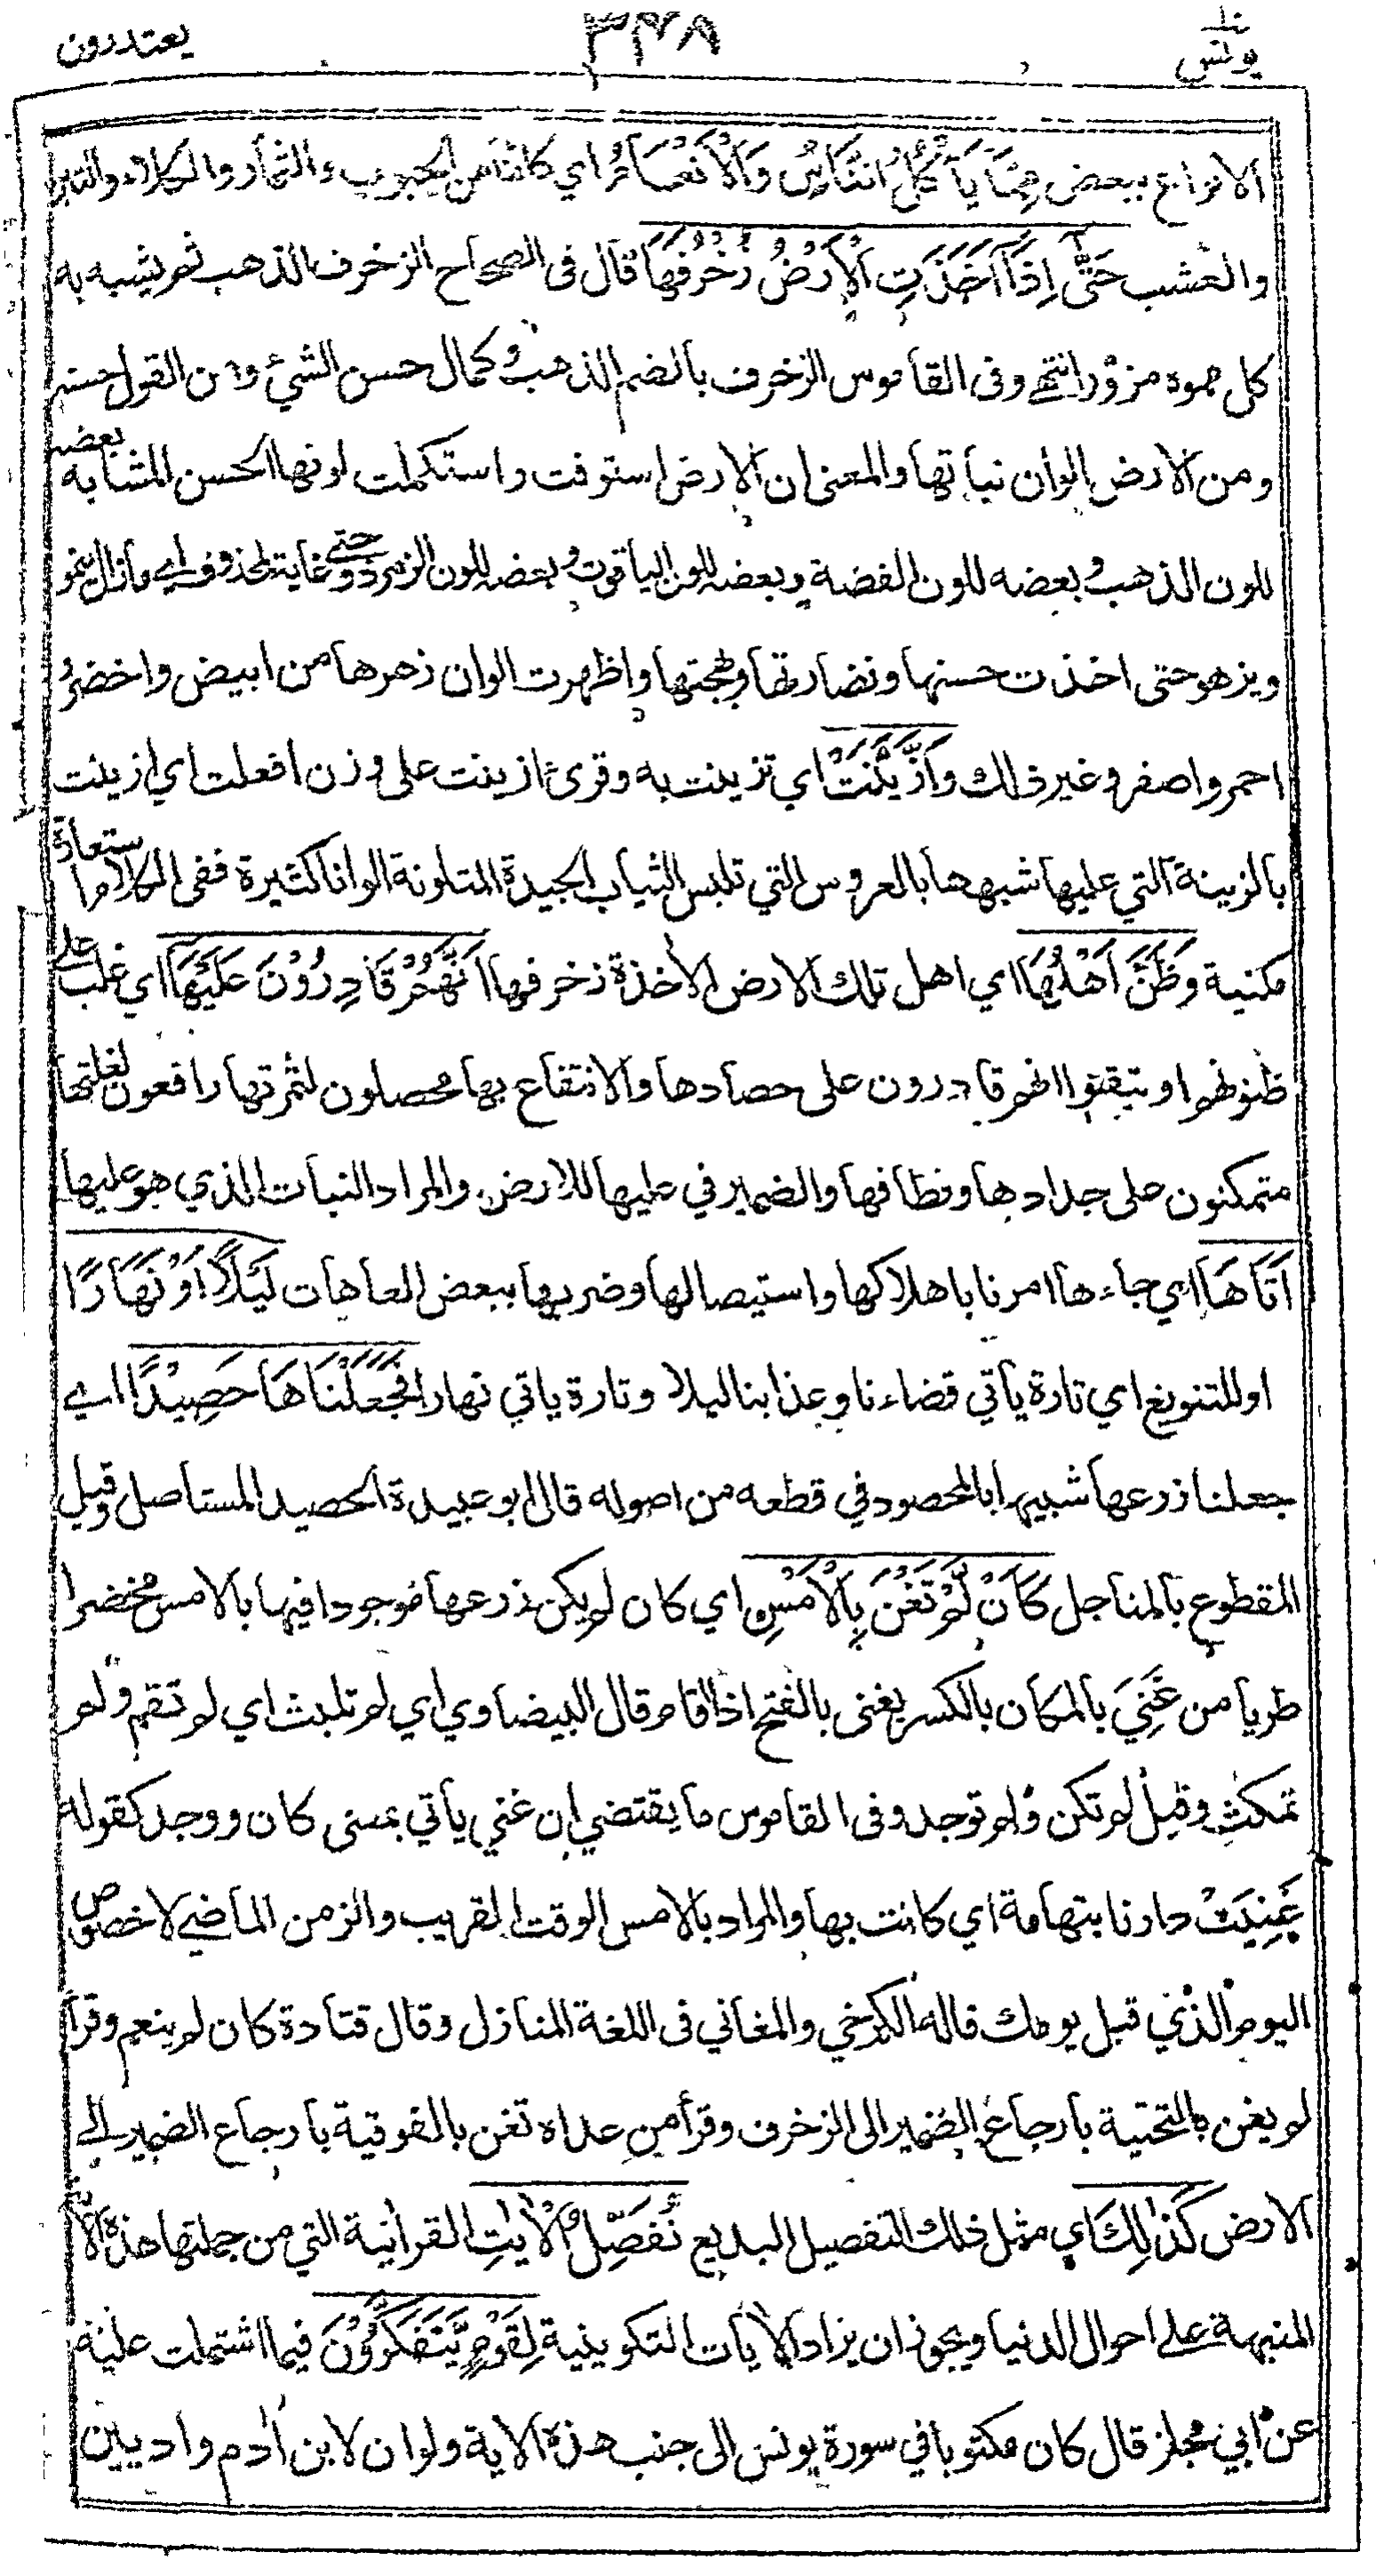 يونس
٣٤٨
يعتذرون
الانواع ببعض مِمَّا يَأْكُلُ النَّاسُ وَالْأَنْعَامُ اي كائنا من الحبوب والثمار والكلاء والتبن
والعشب حَتَّى إِذَا أَخَذَتِ الْأَرْضُ زُخْرُفَهَا قال فى الصحاح الزخرف الذهب ثم يشبه به
كل مموه مزور انتهى وفى القاموس الزخرف بالضم الذهب وكمال حسن الشيء ومن القول حسنه
ومن الارض الوان نباتها والمعنى ان الارض استوفت واستكملت لونها الحسن المشابه بعضه
للون الذهب وبعضه للون الفضة وبعضه للون الياقوت وبعضه للون الزمرد وحتى غاية لمحذوف اي ما زال ينمو
ويزهو حتى اخذت حسنها ونضارتها وبهجتها واظهرت الوان زهرها من ابيض واخضر و
احمر واصفر وغير ذلك وَازَّيَّنَتْ اي تزينت به وقرئ ازينت على وزن افعلت اي ازينت
بالزينة التي عليها شبهها بالعروس التي تلبس الثياب الجيدة المتلونة الوانا كثيرة ففى الكلام استعارة
مكنية وَظَنَّ أَهْلُهَا اي اهل تلك الارض الاخذة زخرفها أَنَّهُمْ قَادِرُوْنَ عَلَيْهَا اي غلب على
ظنونهم او تيقنوا انهم قادرون على حصادها والانتفاع بها محصلون لثمرتها رافعون لغلتها
متمكنون على جدادها وقطافها والضمير في عليها للارض والمراد النبات الذي هو عليها
أَتَاهَا اي جاءها امرنا باهلاكها واستيصالها وضربها ببعض العاهات لَيْلًا أَوْ نَهَارًا
او للتنويع اي تارة يأتي قضاءنا وعذابنا ليلا وتارة ياتي نهارا فَجَعَلْنَاهَا حَصِيْدًا اي
جعلنا زرعها شبيها بالمحصود في قطعه من اصوله قال ابو عبيدة الحصيد المستاصل وقيل
المقطوع بالمناجل كَأَنْ لَّمْ تَغْنَ بِالْأَمْسِ اي كان لم يكن زرعها موجودا فيها بالامس مخضرا
طريا من غَنِيَ بالمكان بالكسر يغنى بالفتح اذا اقام قال البيضاوي اي لم تلبث اي لم تقم ولم
تمكث وقيل لم تكن ولم توجد وفى القاموس ما يقتضي ان غني يأتي بمعنى كان ووجد كقوله
غَنِيَتْ دارنا بتهامة اي كانت بها والمراد بالامس الوقت القريب والزمن الماضي لا خصوص
اليوم الذي قبل يومك قاله الكرخي والمغاني فى اللغة المنازل وقال قتادة كان لم ينعم وقرأ
لم يغن بالتحتية بارجاع الضمير الى الزخرف وقرأ من عداه تغن بالفوقية بارجاع الضمير الى
الارض كَذَلِكَ اي مثل ذلك التفصيل البديع نُفَصِّلُ الْآيٰتِ القرانية التي من جملتها هذه الاية
المنبهة على احوال الدنيا ويجوز ان يراد الايات التكوينية لِقَوْمٍ يَّتَفَكَّرُوْنَ فيما اشتملت عليه
عن ابي مجلز قال كان مكتوبا في سورة يونس الى جنب هذه الاية ولو ان لابن ادم واديين